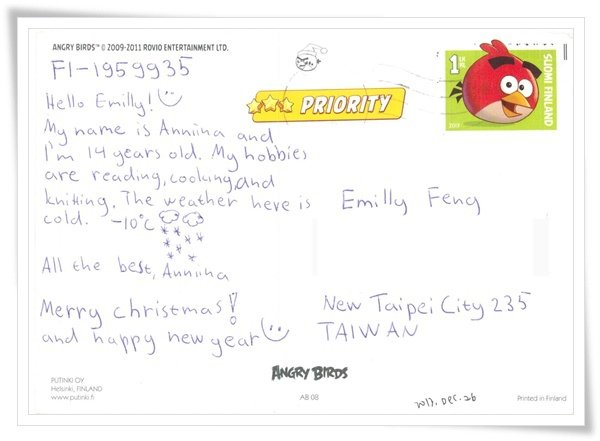 ANGRY BIRDS™ © 2009-2011 ROVIO ENTERTAINMENT LTD.
FI-1959935
Hello Emilly!
My name is Anniina and
I'm 14 years old. My hobbies
are reading, cooking, and
knitting. The weather here is
cold. -10°C
All the best, Anniina
Merry christmas!
and happy new year
PRIORITY
1
SUOMI FINLAND
Emilly Feng
New Taipei City 235
TAIWAN
PUTINKI OY
Helsinki, FINLAND
www.putinki.fi
ANGRY BIRDS
AB 08
Dec. 26
Printed in Finland